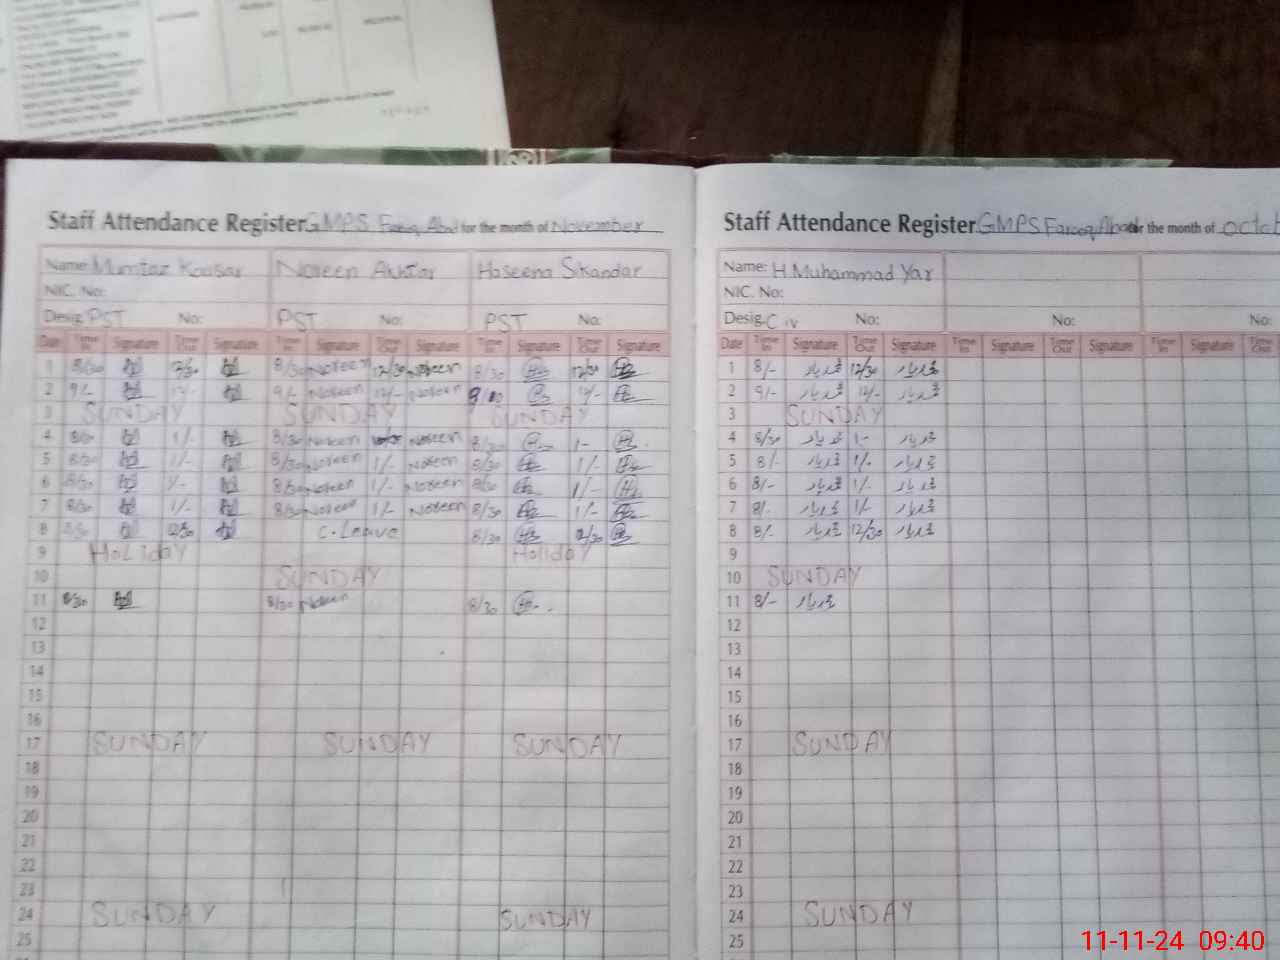 Staff Attendance Register GMPS Farooq Abad for the month of November
Name: Mumtaz Kousar Noreen Akhtar Haseena Sikandar
NIC. No:
Desig: PST No: PST No: PST No:
Date Time In Signature Time Out Signature Time In Signature Time Out Signature Time In Signature Time Out Signature
1 8/30 12/30 8/30 Noreen 12/30 Noreen 8/30 12/30
2 9/- 12/- 9/- Noreen 12/- Noreen 12/-
3 SUNDAY SUNDAY SUNDAY
4 8/30 1/- 8/30 Noreen Noreen 8/30 1-
5 8/30 1/- 8/30 Noreen 1/- Noreen 8/30 1/-
6 8/30 1/- 8/30 Noreen 1/- Noreen 8/30 1/-
7 8/30 1/- 8/30 Noreen 1/- Noreen 8/30 1/-
8 8/30 12/30 C.Leave 8/30 12/30
9 HoLiday Holiday
10 SUNDAY
11 8/30 8/30 Noreen 8/30
12
13
14
15
16
17 SUNDAY SUNDAY SUNDAY
18
19
20
21
22
23
24 SUNDAY SUNDAY
25
Staff Attendance Register GMPS Farooq Abad for the month of Octob
Name: H.Muhammad Yar
NIC. No:
Desig: C iv No: No: No:
Date Time In Signature Time Out Signature Time In Signature Time Out Signature Time In Signature Time Out Signature
1 8/- محمد یار 12/30 محمد یار
2 9/- محمد یار 12/- محمد یار
3 SUNDAY
4 8/30 محمد یار 1- محمد یار
5 8/- محمد یار 1/- محمد یار
6 8/- محمد یار 1/- محمد یار
7 8/- محمد یار 1/- محمد یار
8 8/- محمد یار 12/30 محمد یار
9
10 SUNDAY
11 8/- محمد یار
12
13
14
15
16
17 SUNDAY
18
19
20
21
22
23
24 SUNDAY
25
11-11-24 09:40